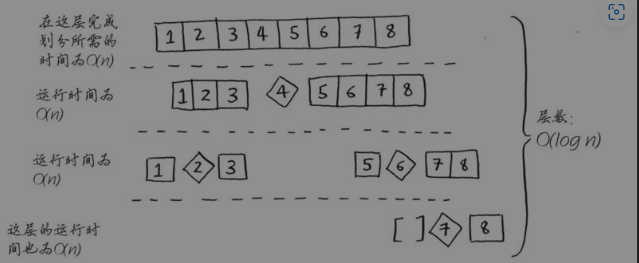 在这层完成
划分所需的
时间为O(n)
1 2 3 4 5 6 7 8
运行时间为
O(n)
1 2 3 4 5 6 7 8
层数:
O(log n)
运行时间为
O(n)
1 2 3 5 6 7 8
这层的运行时
间也为O(n)
[ ] 7 8